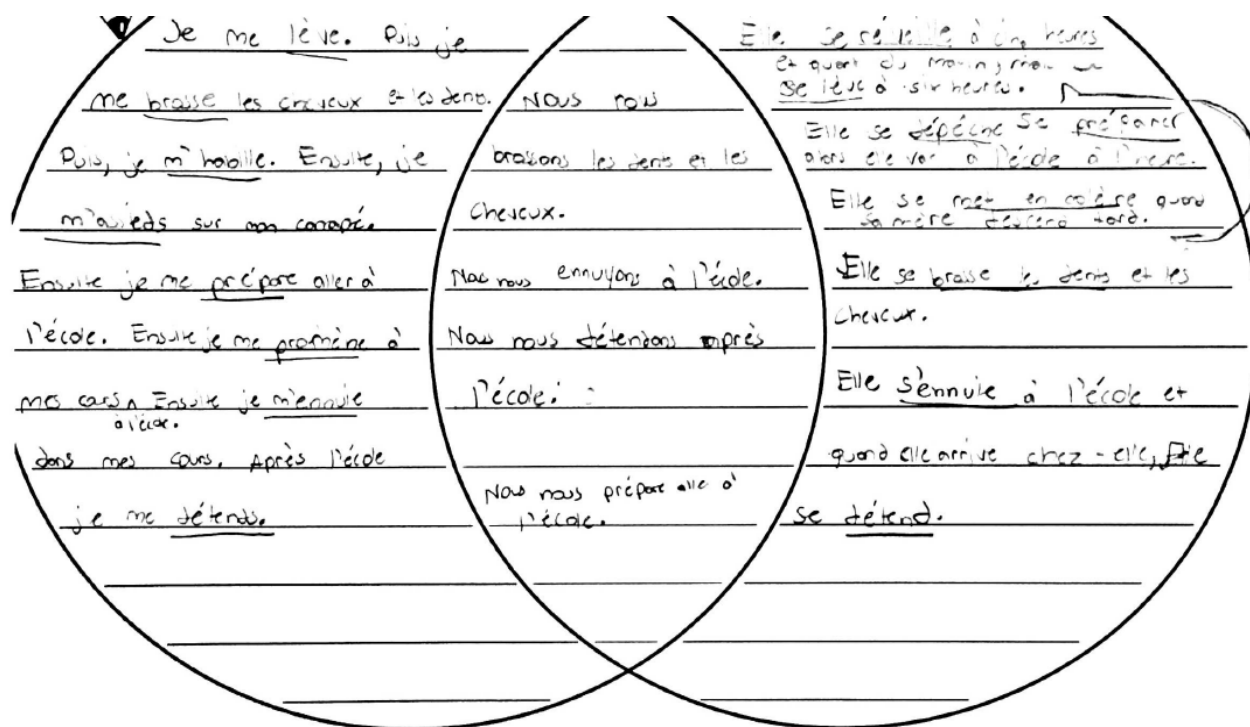 Je me lève. Puis je
me brosse les cheveux et les dents.
Puis, je m'habille. Ensuite, je
m'assieds sur mon canapé.
Ensuite je me prépare aller à
l'école. Ensuite je me promène à
mes cours Ensuite je m'ennuie
à l'école.
dans mes cours. Après l'école
je me détends.
Nous nous
brossons les dents et les
cheveux.
Nous nous ennuyons à l'école.
Nous nous détendons après
l'école.
Nous nous prépare alle à
l'école.
Elle se réveille à cinq heures
et quart du matin, mais
se lève à six heures.
Elle se dépêche se préparer
alors elle va à l'école à l'heure.
Elle se met en colère quand
sa mère descend tard.
Elle se brosse les dents et les
cheveux.
Elle s'ennuie à l'école et
quand elle arrive chez-elle, Elle
se détend.